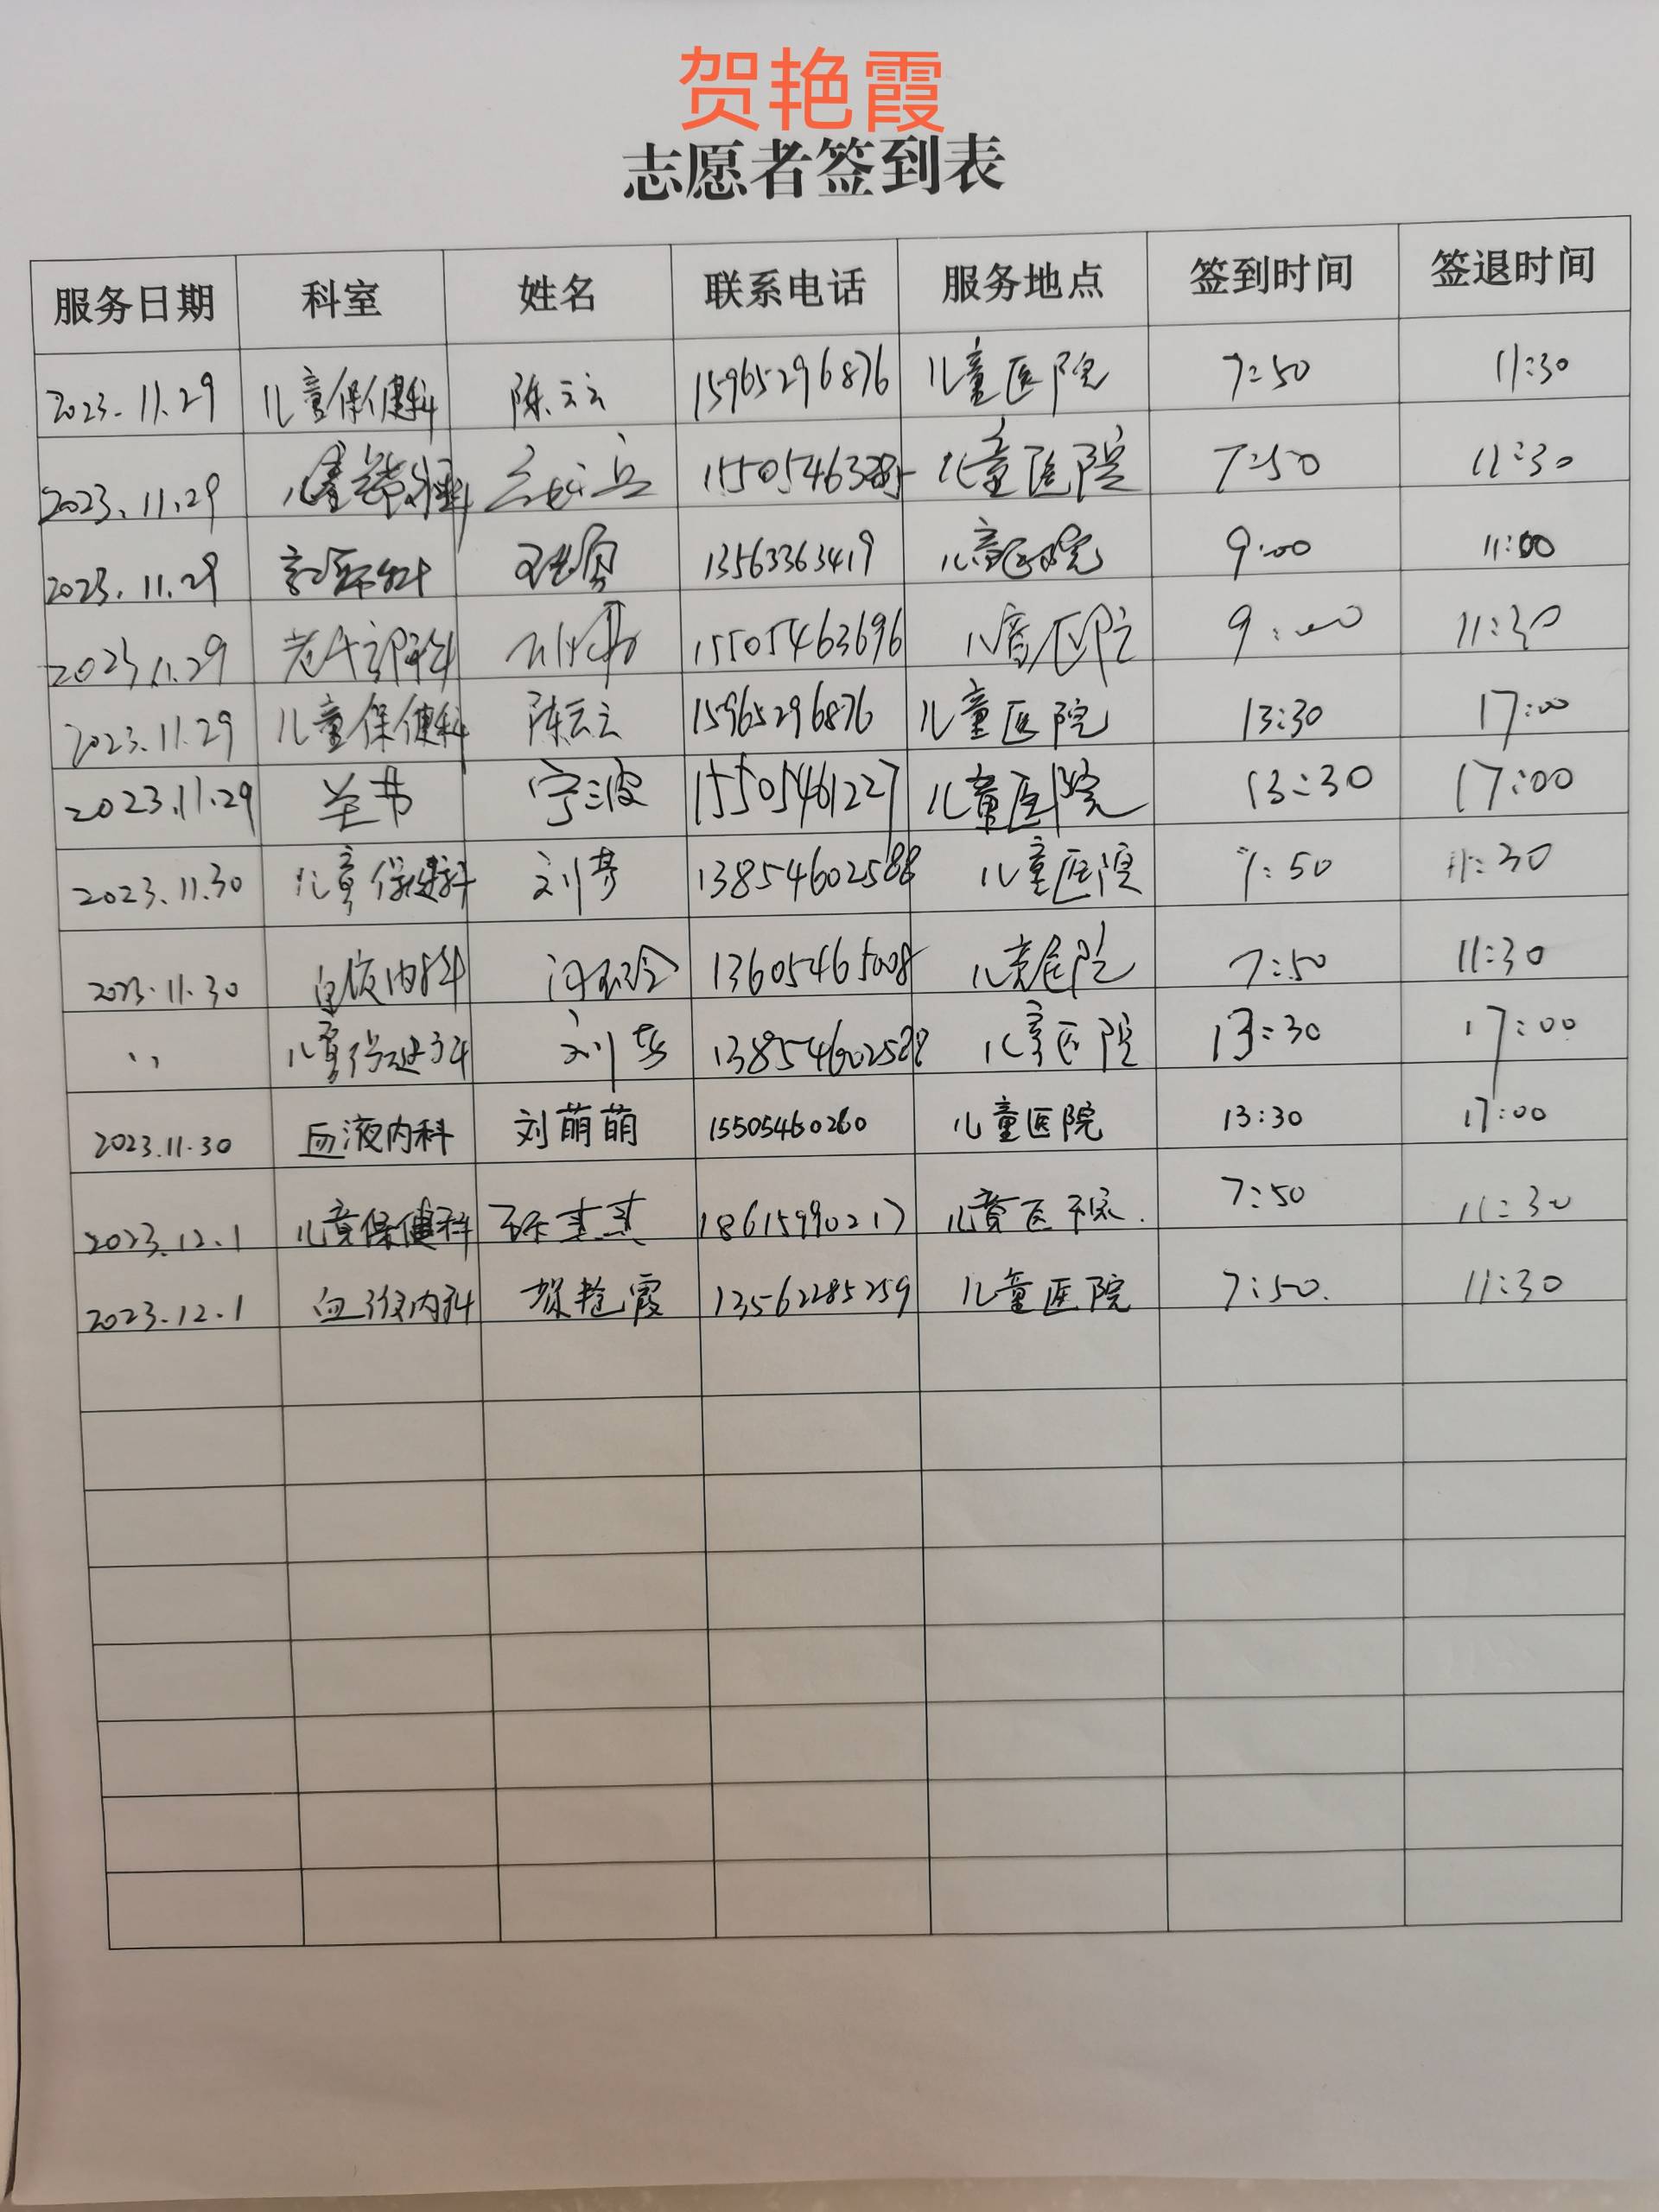 贺艳霞
志愿者签到表
服务日期 科室 姓名 联系电话 服务地点 签到时间 签退时间
2023.11.29 儿童保健科 陈云云 15965296876 儿童医院 7:50 11:30
2023.11.29 儿童医院 7:50 11:30
2023.11.29 13563363419 儿童医院 9:00 11:00
2023.11.29 15505463696 儿童医院 9:00 11:30
2023.11.29 儿童保健科 陈云云 15965296876 儿童医院 13:30 17:00
2023.11.29 宁波 15505461227 儿童医院 13:30 17:00
2023.11.30 儿童保健科 13854602588 儿童医院 7:50 11:30
2023.11.30 血液内科 13605465008 儿童医院 7:50 11:30
儿童保健科 13854602588 儿童医院 13:30 17:00
2023.11.30 血液内科 刘萌萌 15505460260 儿童医院 13:30 17:00
2023.12.1 儿童保健科 18615990217 儿童医院. 7:50 11:30
2023.12.1 血液内科 贺艳霞 13562285259 儿童医院 7:50. 11:30